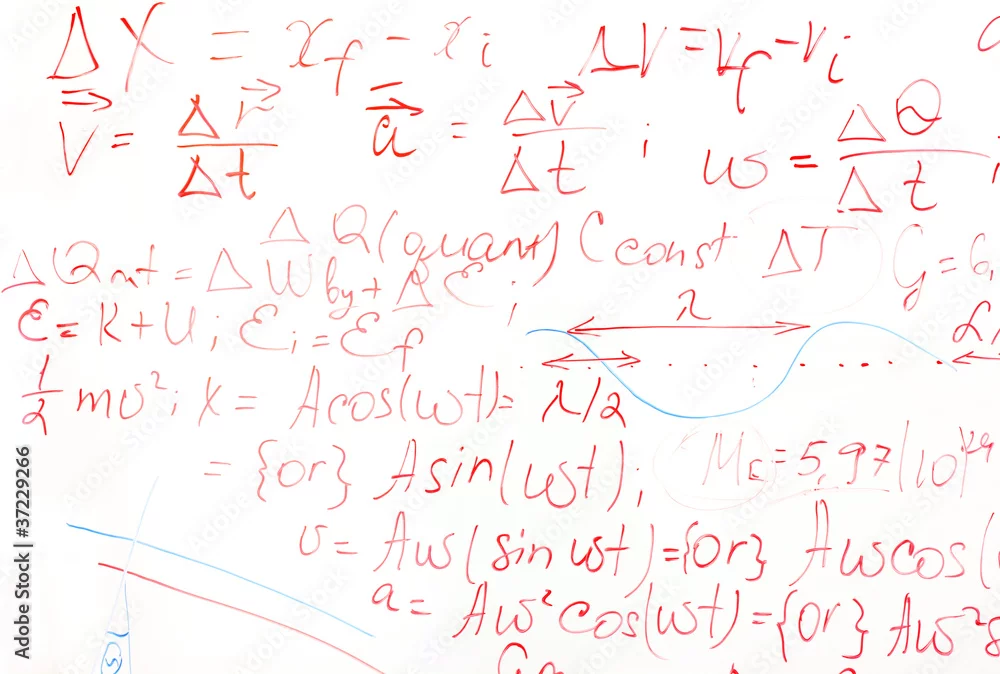 ΔX = x_f - x_i ΔV = V_f - V_i
V⃗ = Δr⃗/Δt a⃗ = Δv⃗/Δt ; ω = ΔQ/Δt ;
Δ Q(quant) C const ΔT G = 6,
ΔQ = ΔW by + Δℰ ;
ℰ = K + U ; ℰ_i = ℰ_f λ
1/2 mυ² ; X = A cos(ωt) = λ/2
= {or} A sin(ωt) ; M = 5,97 | 10
υ = Aω (sin ωt) = {or} Aω cos(
a = Aω² cos(ωt) = {or} Aω² s
Adobe Stock | #37229266